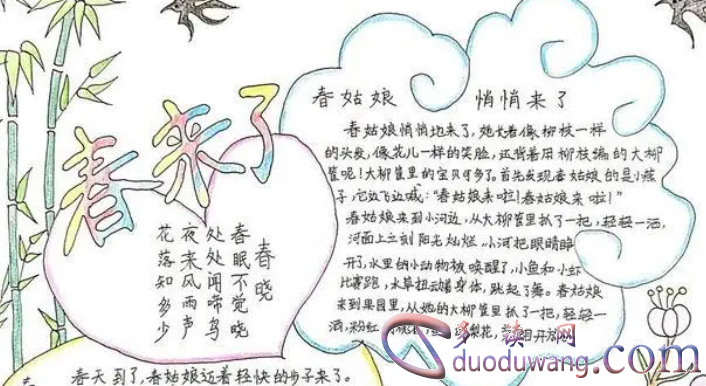 春来了
春姑娘 悄悄来了
春姑娘悄悄地来了,她长着像柳枝一样
的头发,像花儿一样的笑脸,还背着用柳枝编的大柳
筐呢!大柳筐里的宝贝可多了。首先发现春姑娘的是小燕
子,它边飞边喊:“春姑娘来啦!春姑娘来啦!”
春姑娘来到小河边,从大柳筐里抓了一把,轻轻一洒,
河面上立刻阳光灿烂,小河把眼睛睁
开了,水里的小动物被唤醒了,小鱼和小虾
比赛跑,水草扭动着身体,跳起了舞。春姑娘
来到果园里,从她的大柳筐里抓了一把,轻轻一
洒,粉红 梨花, 开放
春晓
春眠不觉晓
处处闻啼鸟
夜来风雨声
花落知多少
春天到了,春姑娘迈着轻快的步子来了。
多读网
duoduwang.com